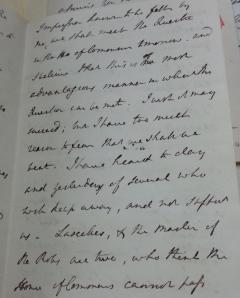 by
me, we shall meet the Question
in the House of Commons tomorrow, and
believe that this is the most
advantageous manner in which the
Question can be met. I wish it may
succeed; but I have too much
reason to fear that we shall be
beat. I have heard to day
and yesterday of several who
will keep away, and not support
us. Lascelles, & the Master of
the Rolls are two, who think the
House of Commons cannot pass